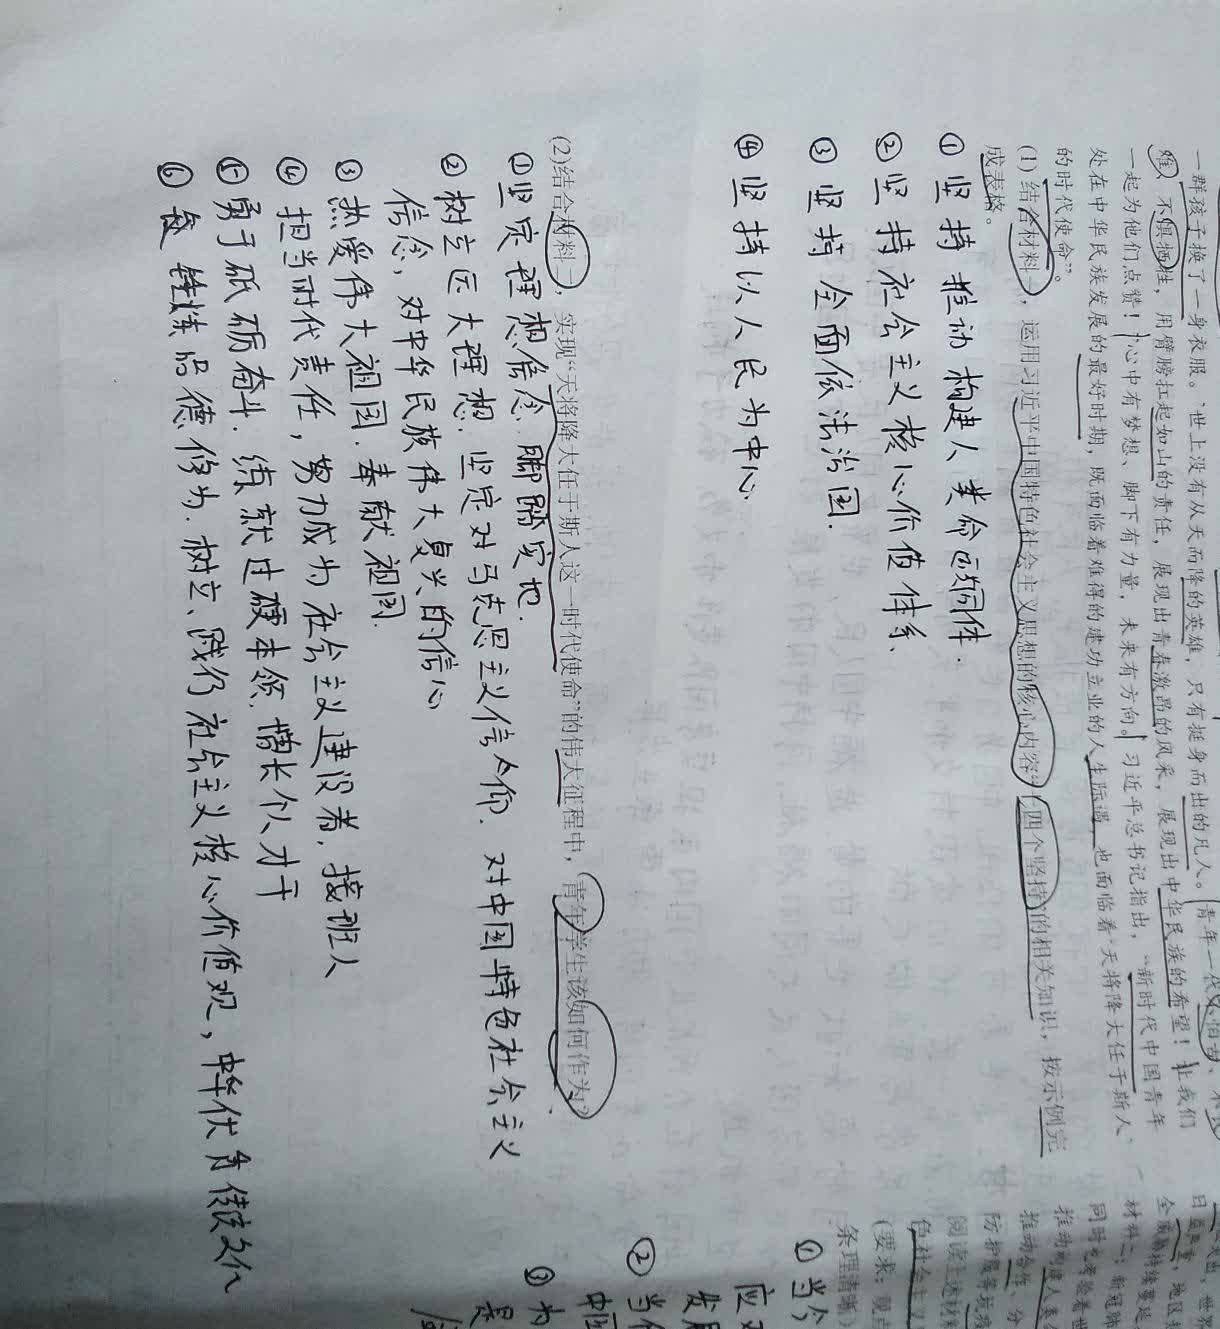 一群孩子换了一身衣服。世上没有从天而降的英雄，只有挺身而出的凡人。青年一代不怕苦、不
难、不惧牺牲，用臂膀扛起如山的责任，展现出青春激昂的风采，展现出中华民族的希望！让我们
一起为他们点赞！心中有梦想、脚下有力量，未来有方向。习近平总书记指出，“新时代中国青年
处在中华民族发展的最好时期，既面临着难得的建功立业的人生际遇，也面临着“天将降大任于斯人”
的时代使命”。
(1) 结合材料一，运用习近平中国特色社会主义思想的核心内容“四个坚持”的相关知识，按示例完
成表格。
① 坚持推动构建人类命运共同体.
② 坚持社会主义核心价值体系、
③ 坚持全面依法治国.
④ 坚持以人民为中心
(2)结合材料一，实现“天将降大任于斯人这一时代使命”的伟大征程中，青年学生该如何作为?
①坚定理想信念.脚踏实地.
②树立远大理想.坚定对马克思主义信仰.对中国特色社会主义
信念，对中华民族伟大复兴的信心
③热爱伟大祖国.奉献祖国.
④ 担当时代责任，努力成为社会主义建设者，接班人
⑤ 勇于砥砺奋斗.练就过硬本领.增长个人才干
⑥ 锤炼品德修为.树立、践行社会主义核心价值观，中华优秀传统文化
材料二：新冠肺
同时也考验着世
推动构建人类
推动合作、分
阅读上述材料
色社会主义
(要求：观点
条理清晰)
① 当今
应
发展
② 当
中国
③ 为
是